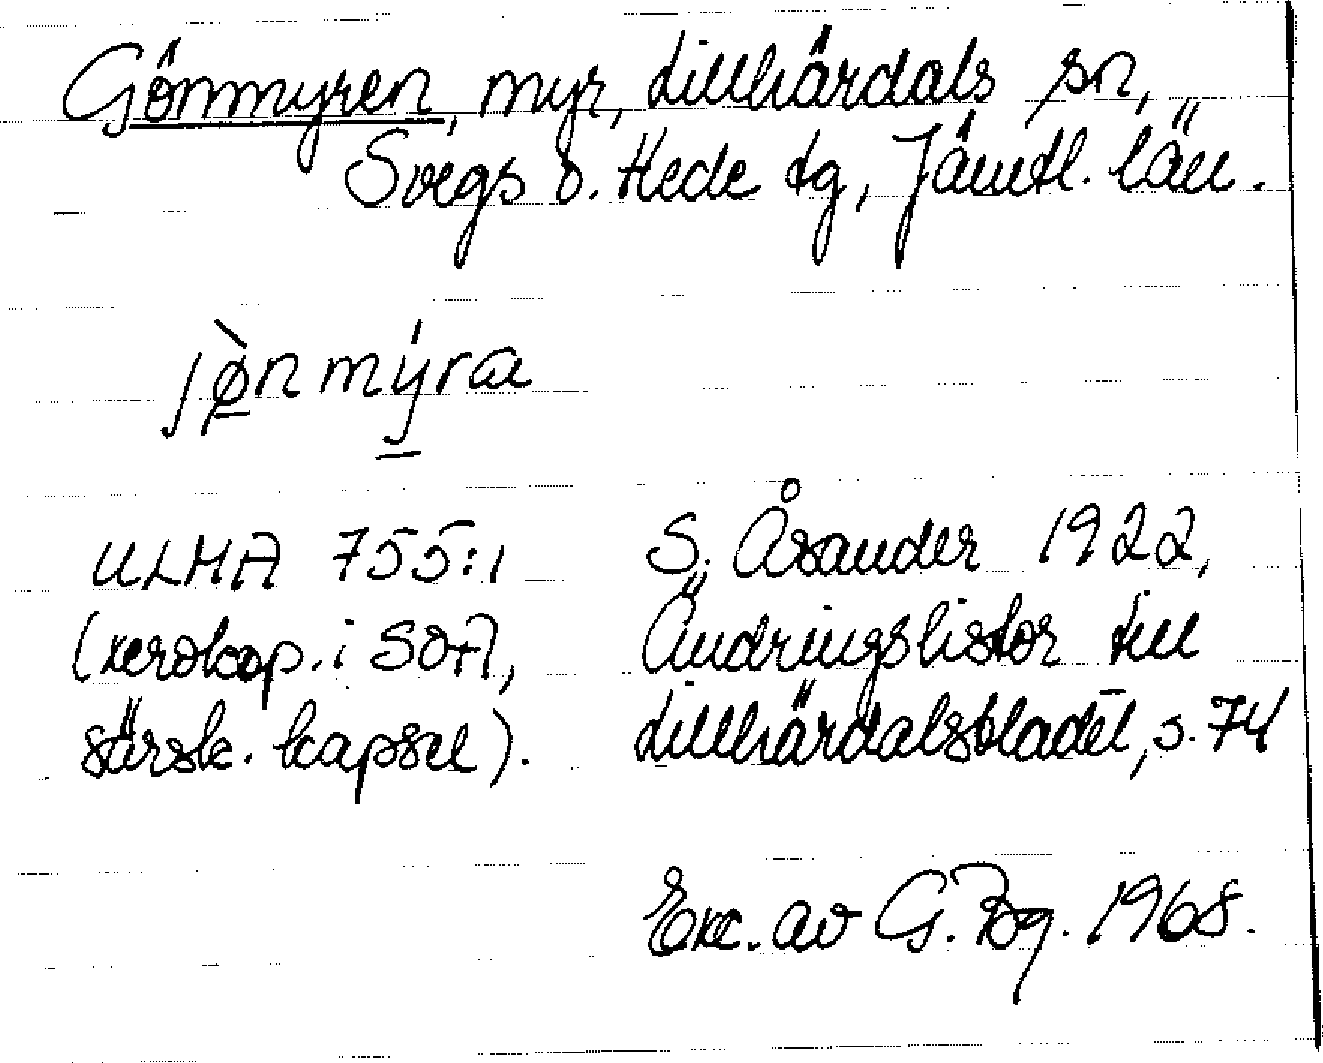 Gönmyren, myr, Lillhärdals sn,
Svegs o. Hede tg, Jämtl. län.
jø̀nmýra
ULMA 755:1
(xerokop. i SOA,
särsk. kapsel).
S. Åsander 1922,
Ändringslistor till
Lillhärdalsbladet, s. 74
Exc. av G. Bg. 1968.